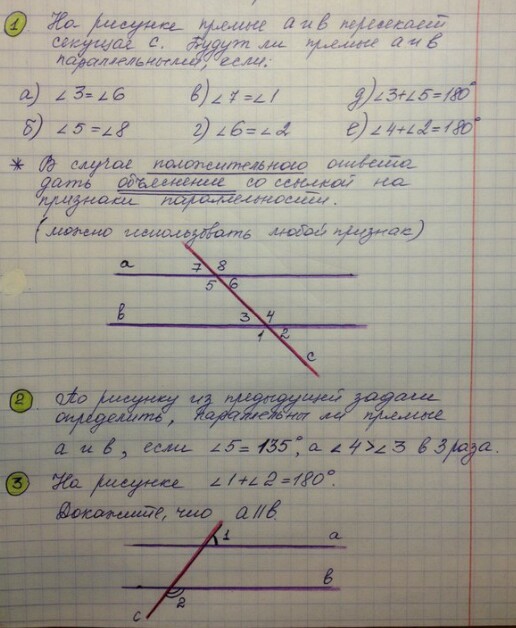 1 На рисунке прямые а и в пересекает
секущая с. Будут ли прямые а и в
параллельными, если:
а) ∠3=∠6 в) ∠7=∠1 д) ∠3+∠5=180°
б) ∠5=∠8 г) ∠6=∠2 е) ∠4+∠2=180°
* В случае положительного ответа
дать объяснение со ссылкой на
признаки параллельности.
(можно использовать любой признак)
а 7 8
5 6
в 3 4
1 2
с
2 По рисунку из предыдущей задачи
определить, параллельны ли прямые
а и в, если ∠5=135°, а ∠4>∠3 в 3 раза.
3 На рисунке ∠1+∠2=180°.
Докажите, что а||в.
1 а
в
2
с